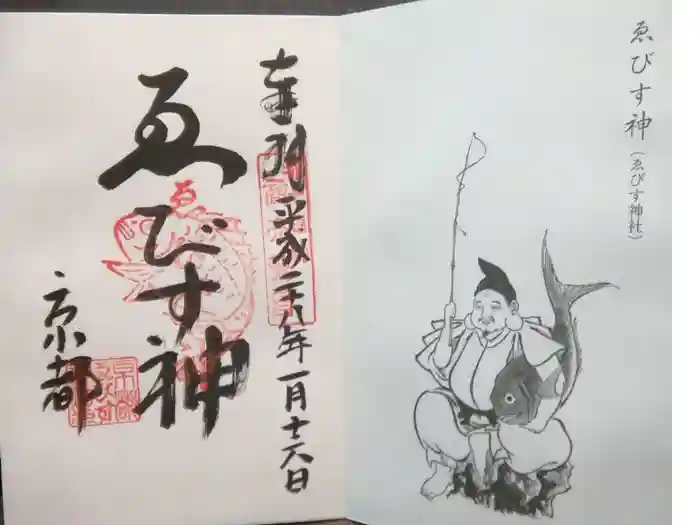 ゑびす神
(ゑびす神社)
奉拝 平成二十八年一月十六日
ゑびす神
京都